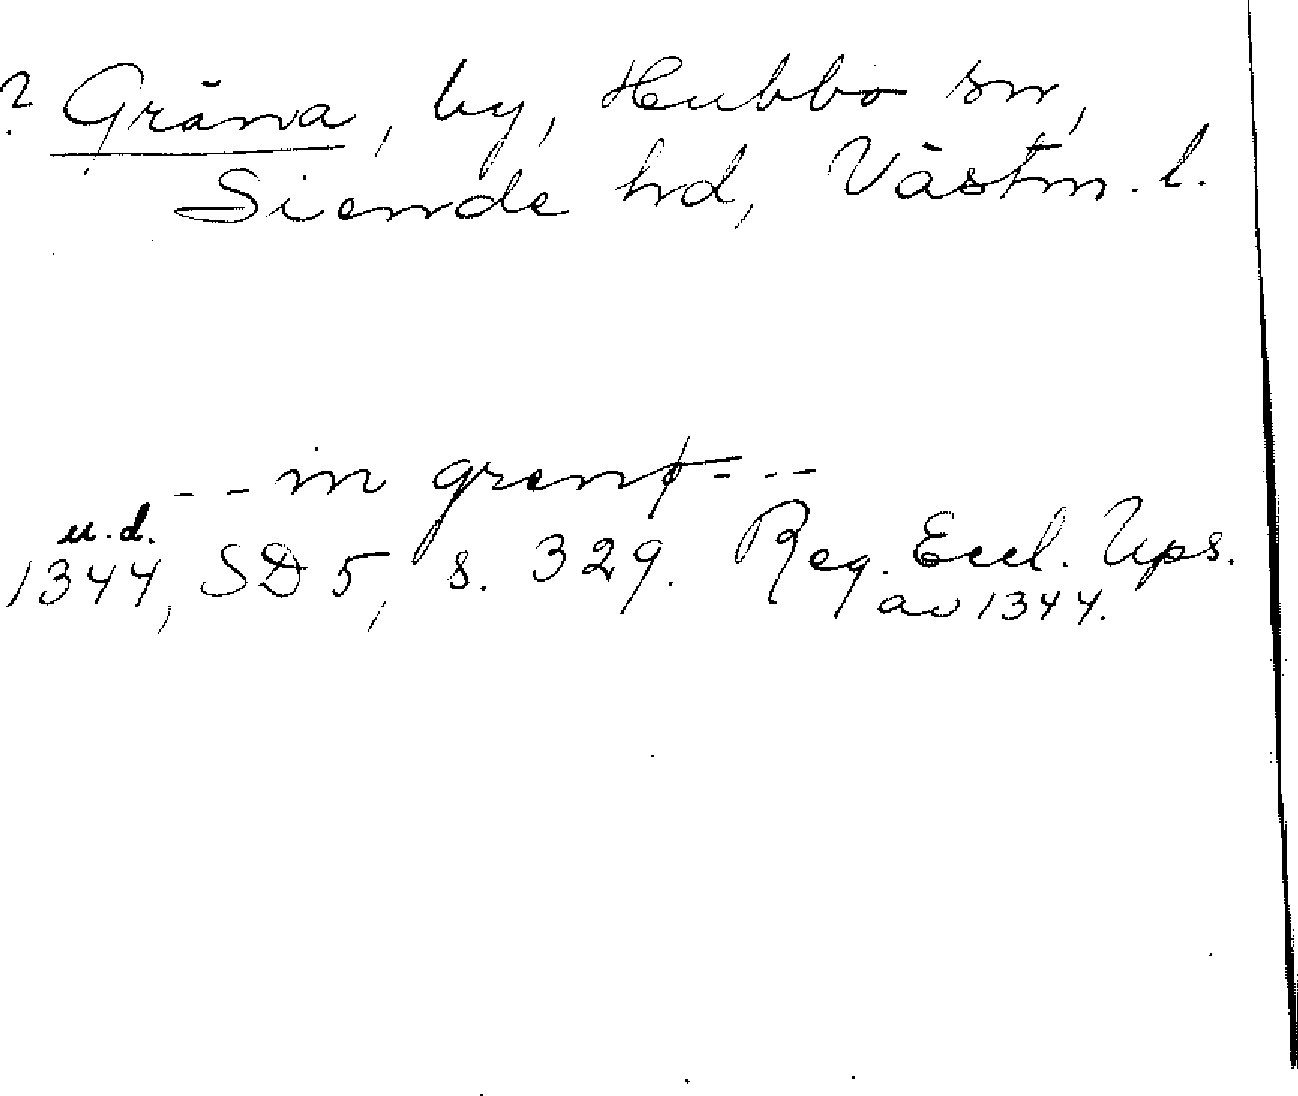 ? Gräna, by, Hubbo sn,
Siende hd, Västm. l.
- - in grenø - - -
u.d.
1344, SD 5, s. 329. Reg. Eccl. Ups.
av 1344.